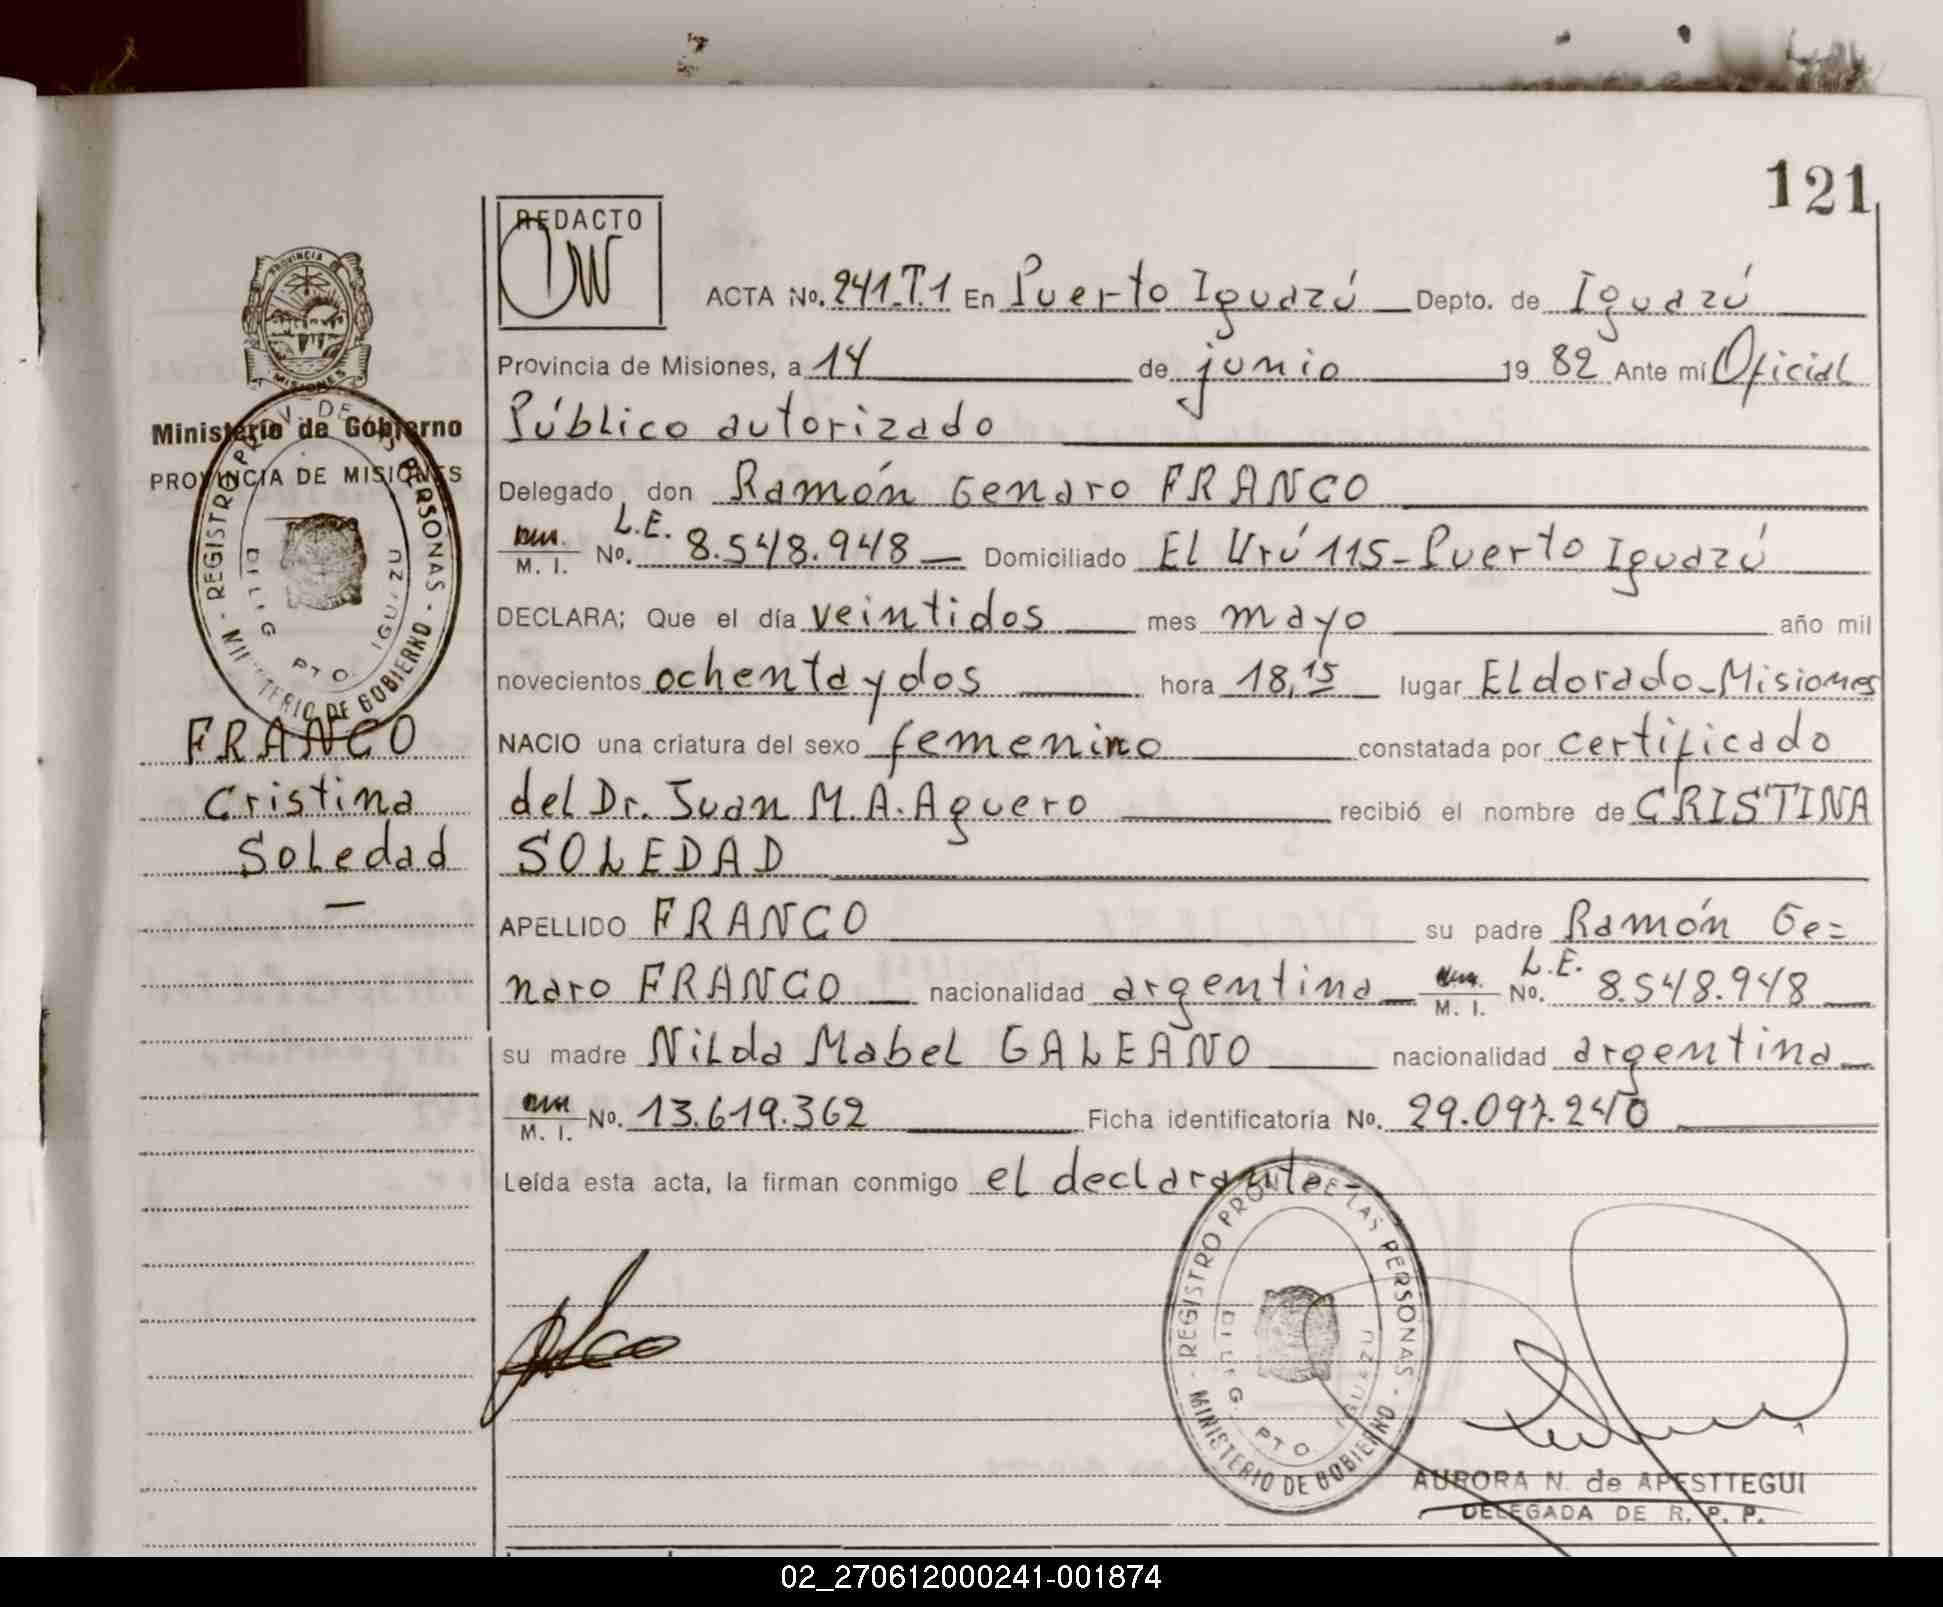 121
REDACTO
ACTA No. 241.T.1 En Puerto Iguazú Depto. de Iguazú
Provincia de Misiones, a 14 de junio 19 82 Ante mí Oficial
Público autorizado
Delegado, don Ramón Genaro FRANCO
M. I. No. L.E. 8.548.948 Domiciliado El Urú 115-Puerto Iguazú
DECLARA; Que el día veintidos mes mayo año mil
novecientos ochenta y dos hora 18,15 lugar Eldorado-Misiones
NACIO una criatura del sexo femenino constatada por certificado
del Dr. Juan M.A. Aguero recibió el nombre de CRISTINA
SOLEDAD
APELLIDO FRANCO su padre Ramón Ge=
naro FRANCO nacionalidad argentina M. I. No. L.E. 8.548.948
su madre Nilda Mabel GALEANO nacionalidad argentina
M. I. No. 13.619.362 Ficha identificatoria No. 29.097.240
Leída esta acta, la firman conmigo el declarante-
PROVINCIA
MISIONES
Ministerio de Gobierno
PROVINCIA DE MISIONES
- REGISTRO PROV. DE LAS PERSONAS -
MINISTERIO DE GOBIERNO
DELEG. PTO. IGUAZU
FRANCO
Cristina
Soledad
- REGISTRO PROV. DE LAS PERSONAS -
MINISTERIO DE GOBIERNO
DELEG. PTO. IGUAZU
AURORA N. de APESTTEGUI
DELEGADA DE R. P. P.
02_270612000241-001874